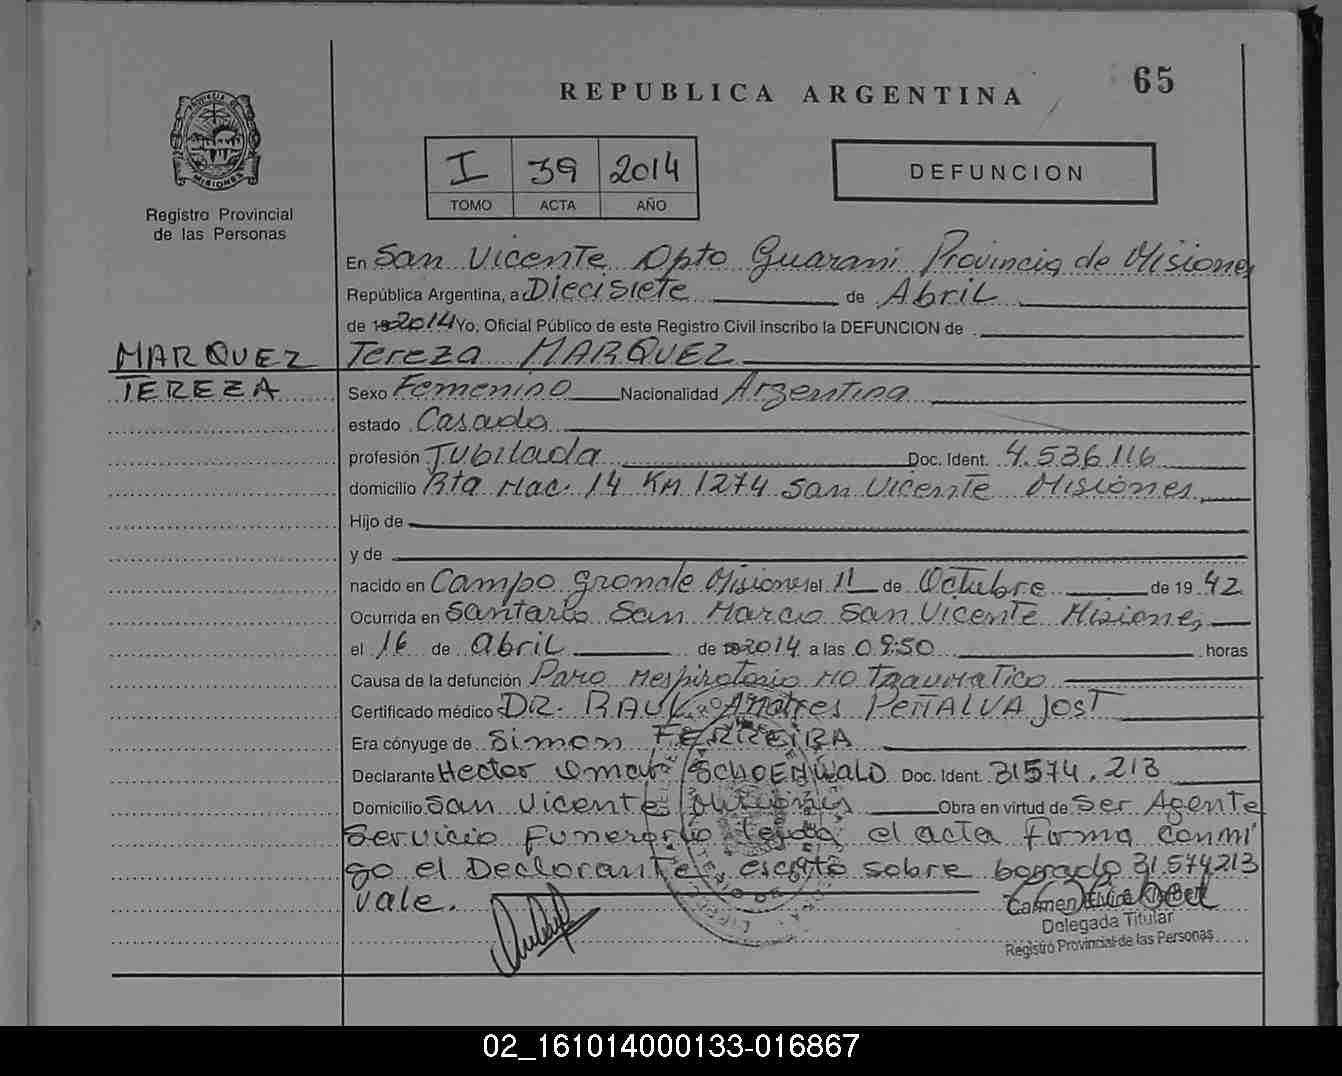 65
REPUBLICA ARGENTINA
PROVINCIA DE
MISIONES
Registro Provincial
de las Personas
I 39 2014
TOMO ACTA AÑO
DEFUNCION
En San Vicente Dpto Guarani Provincia de Misiones
República Argentina, a Diecisiete de Abril
de 2014 Yo, Oficial Público de este Registro Civil inscribo la DEFUNCION de
MARQUEZ Tereza MARQUEZ
TEREZA Sexo Femenino Nacionalidad Argentina
estado Casada
profesión Jubilada Doc. Ident. 4.536116
domicilio Rta Nac. 14 KM 1274 San Vicente Misiones
Hijo de
y de
nacido en Campo Grande Misiones el 11 de Octubre de 1942
Ocurrida en San Vicente Misiones
el 16 de Abril de 2014 a las 09:50 horas
Causa de la defunción Paro Respiratorio NO Traumatico
Certificado médico DR. RAUL Andres PEÑALVA JOST
Era cónyuge de Simon FERREIRA
Declarante Hector Omar SCHOENWALD Doc. Ident. 31574.213
Domicilio San Vicente Misiones Obra en virtud de Ser Agente
Servicio Funerario el acta firma conmi
go el Declarante escrito sobre borrado 31.574213
Vale.
Carmen
Delegada Titular
Registro Provincial de las Personas
02_161014000133-016867